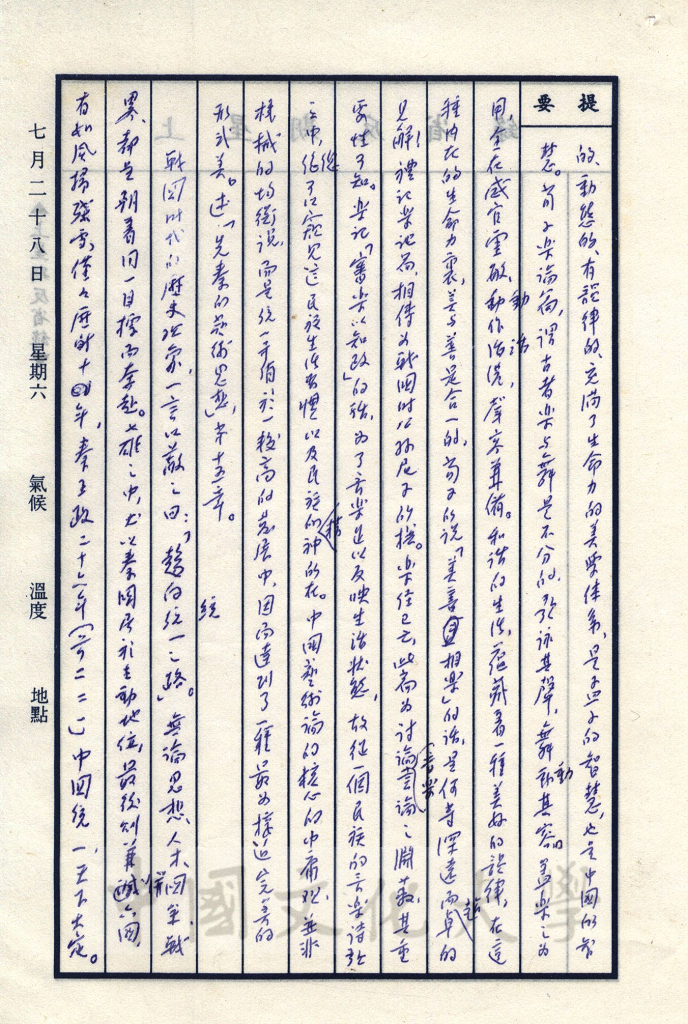 提要
的、動態的、有韻律的、充滿了生命力的美學体系，是孟子的智慧，也是中國的智
慧。荀子樂論篇，謂古者樂与舞是不分的，歌詠其聲，舞動其容。蓋樂之为
用全在感官靈敏，動作活潑，聲容兼備。和諧的生活，蘊藏着一種美妙的韻律，在這
種內在的生命力裏，美与善是合一的，荀子所說「美善相樂」的話，是何等深遠而卓越的
見解！禮記樂記篇，相傳为戰國時公孫尼子所撰。樂經已亡，此篇为討論音樂理論之淵藪，其重
要性可知。樂記「審樂以知政」的話，为了音樂足以反映生活狀態，故從一個民族的音樂詩歌
之中，俱可以窺見這民族生活習慣以及民族精神所在。中國藝術論的核心的中庸觀，並非
機械的均衡說，而是統一矛盾於一較高的發展中，因而達到了一種最为接近完美的
形式美。述「先秦的藝術思想」，第十五章。
戰國時代的歷史現象，一言以蔽之曰：「趨向統一之路」。無論思想、人才、國策、戰
畧，都是朝着同一目標而奔赴。七雄之中，尤以秦國居於主動地位，最後則兼併六國
有如風掃殘雪，僅僅歷時十四年，秦王政二十六年（前二二一）中國統一，天下大定。
七月二十八日 星期六 氣候 溫度 地點
中國文化大學